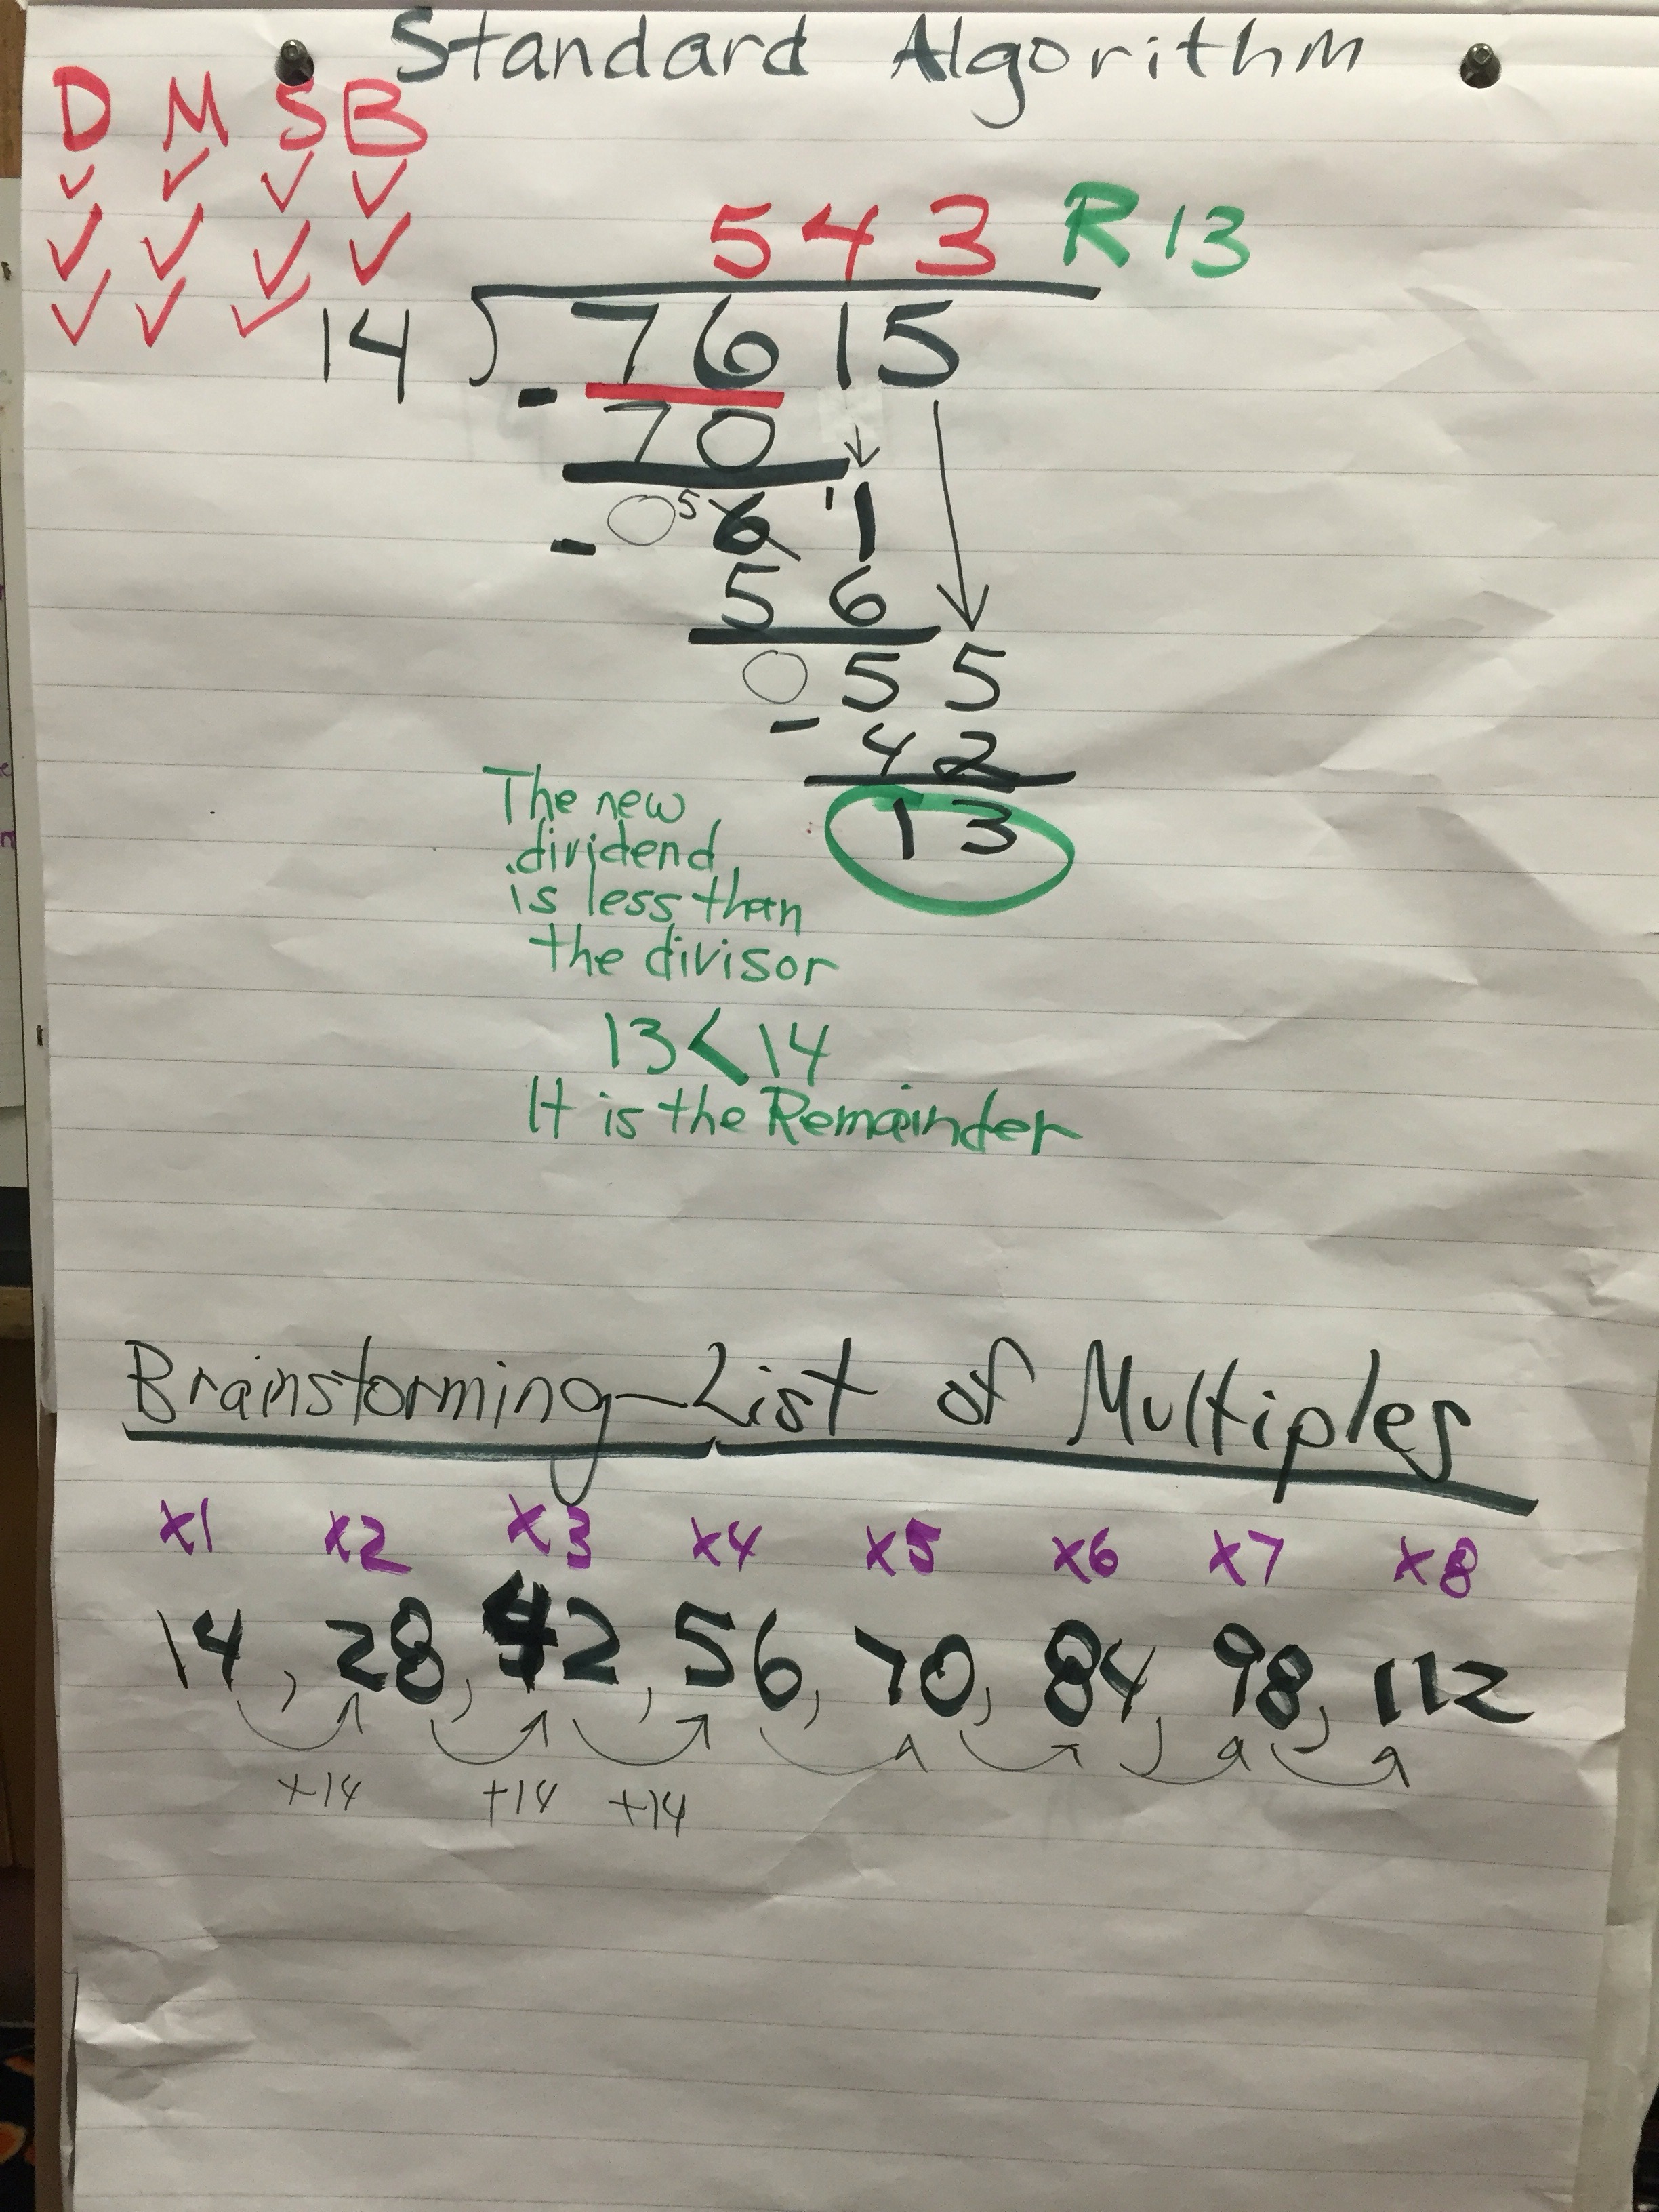 Standard Algorithm
D M S B
✓ ✓ ✓ ✓
✓ ✓ ✓ ✓
✓ ✓ ✓
543 R 13
14 ) 7615
- 70
0 5 6 '1
- 56
0 55
- 42
13
The new
dividend
is less than
the divisor
13 < 14
It is the Remainder
Brainstorming-List of Multiples
x1 x2 x3 x4 x5 x6 x7 x8
14, 28, 42, 56, 70, 84, 98, 112
+14 +14 +14